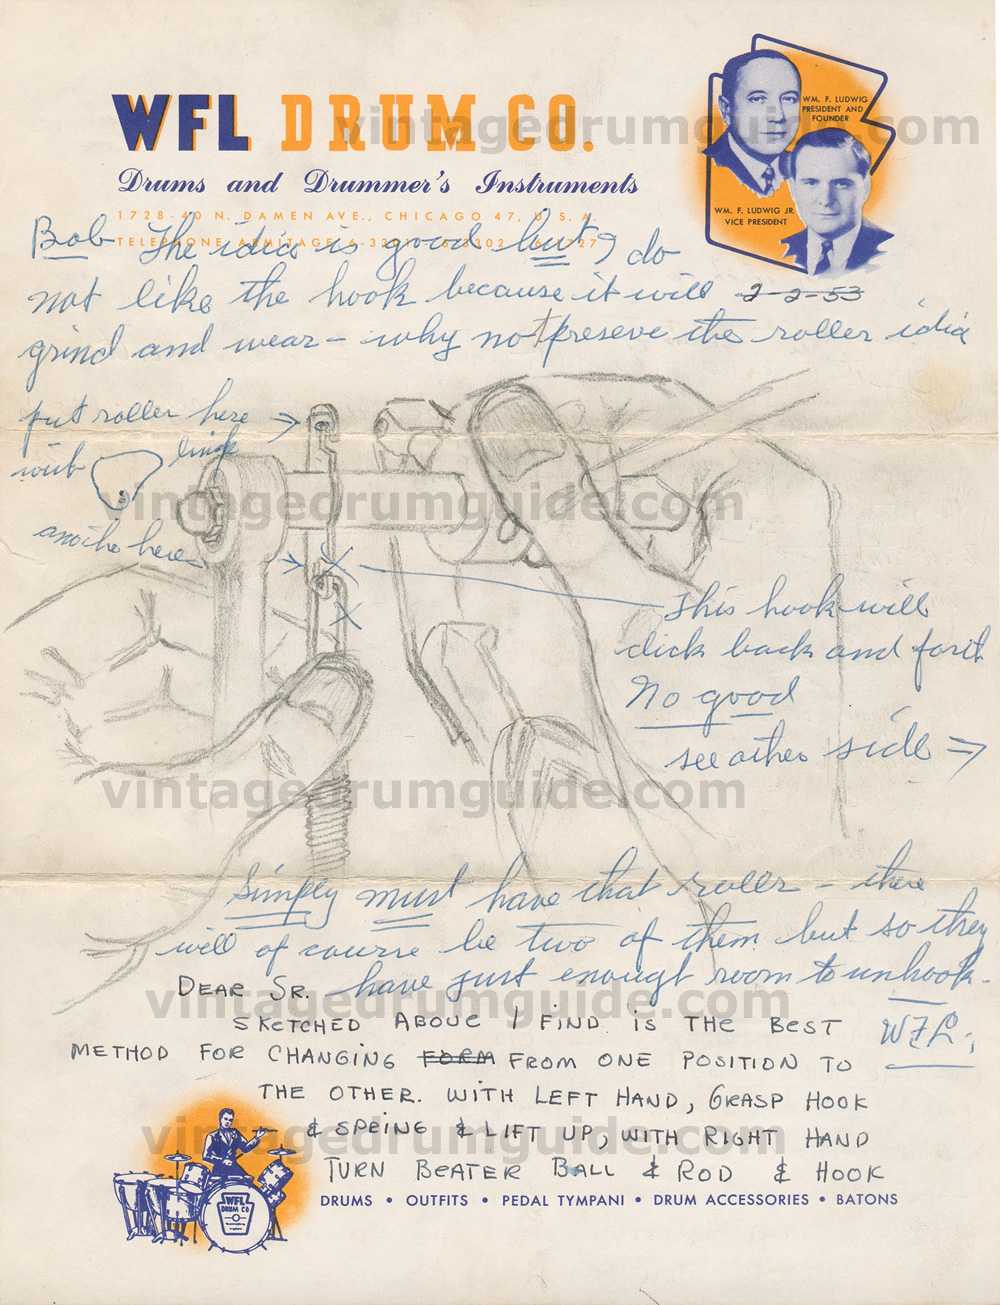 WFL DRUM CO.
Drums and Drummer's Instruments
1728-40 N. DAMEN AVE., CHICAGO 47, U.S.A.
TELEPHONE ARMITAGE 6-3301 6-3302 6-1727
WM. F. LUDWIG
PRESIDENT AND
FOUNDER
WM. F. LUDWIG JR.
VICE PRESIDENT
vintagedrumguide.com
Bob - The idia is good but I do
not like the hook because it will
2-2-53
grind and wear - why not preseve the roller idia
put roller here
with
another here
vintagedrumguide.com
This hook will
click back and forth
No good
see other side
vintagedrumguide.com
Simply must have that roller - there
will of course be two of them but so they
have just enough room to unhook.
WFL.
vintagedrumguide.com
DEAR SR.
SKETCHED ABOVE I FIND IS THE BEST
METHOD FOR CHANGING FORM FROM ONE POSITION TO
THE OTHER. WITH LEFT HAND, GRASP HOOK
& SPRING & LIFT UP, WITH RIGHT HAND
TURN BEATER BALL & ROD & HOOK
vintagedrumguide.com
WFL
DRUM CO
DRUMS • OUTFITS • PEDAL TYMPANI • DRUM ACCESSORIES • BATONS